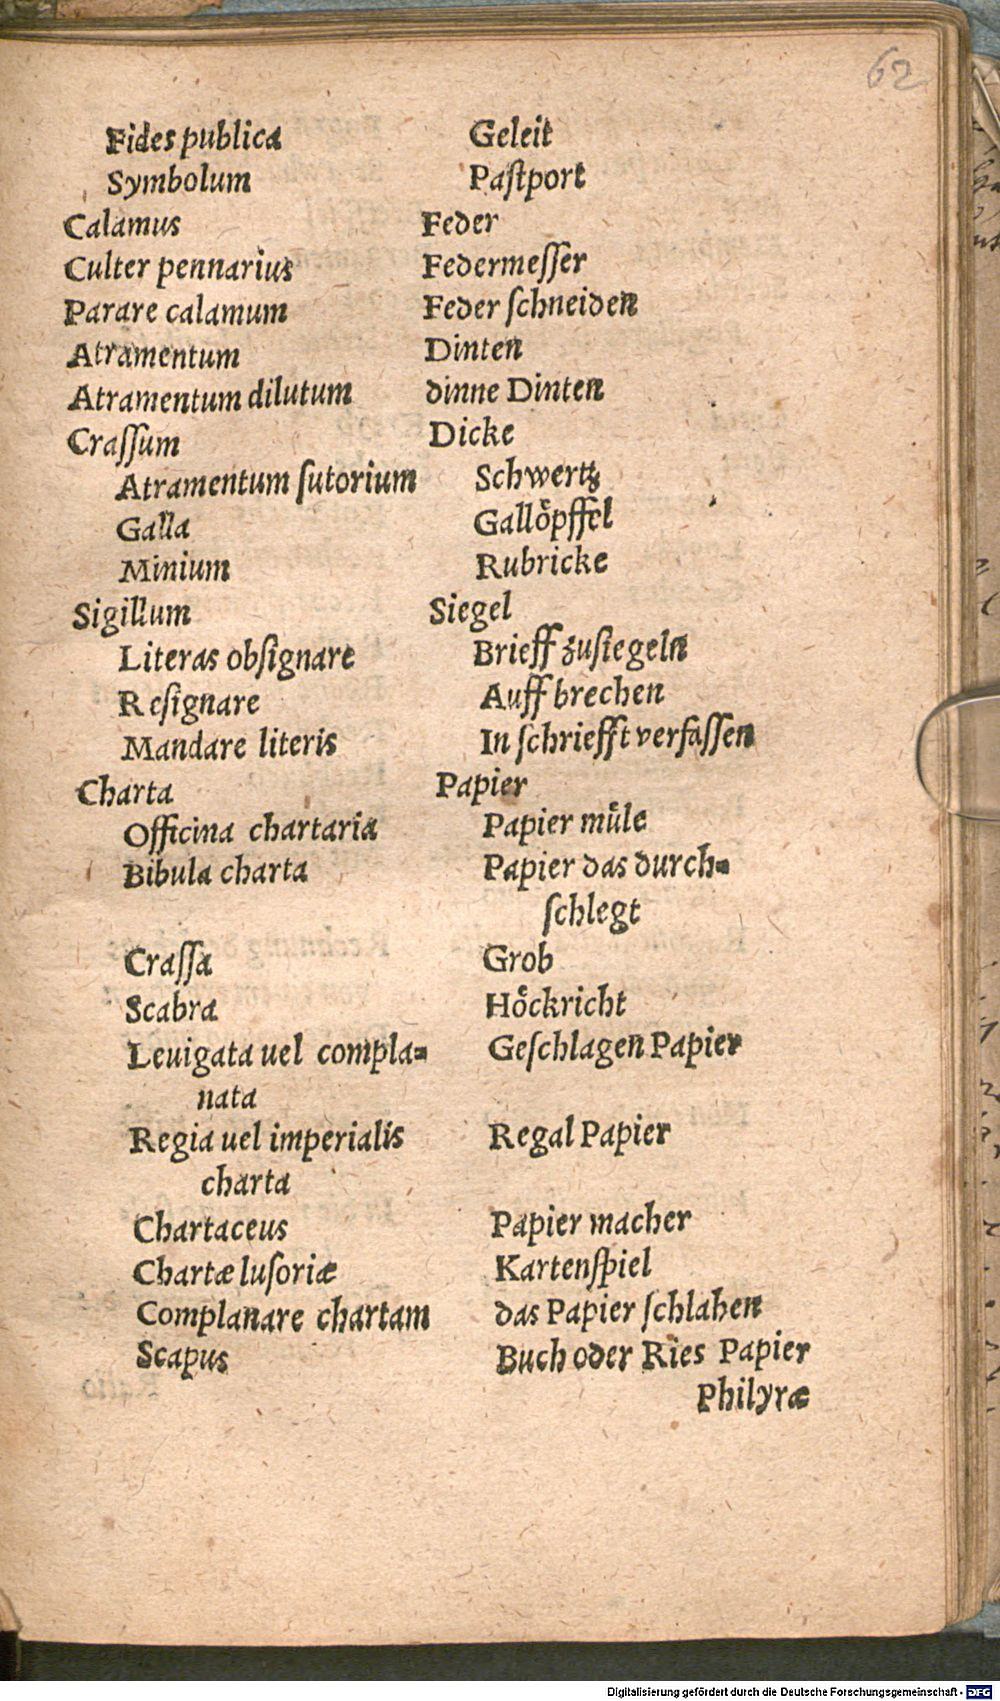 62
Fides publica Geleit
Symbolum Paſtport
Calamus Feder
Culter pennarius Federmeſſer
Parare calamum Feder ſchneiden
Atramentum Dinten
Atramentum dilutum dinne Dinten
Craſſum Dicke
Atramentum ſutorium Schwertz
Galla Gallöpffel
Minium Rubricke
Sigillum Siegel
Literas obſignare Brieff zuſiegeln
Reſignare Auff brechen
Mandare literis In ſchriefft verfaſſen
Charta Papier
Officina chartaria Papier müle
Bibula charta Papier das durch-
ſchlegt
Craſſa Grob
Scabra Höckricht
Leuigata uel compla- Geſchlagen Papier
nata
Regia uel imperialis Regal Papier
charta
Chartaceus Papier macher
Chartæ luſoriæ Kartenſpiel
Complanare chartam das Papier ſchlahen
Scapus Buch oder Ries Papier
Philyræ
Digitalisierung gefördert durch die Deutsche Forschungsgemeinschaft - DFG